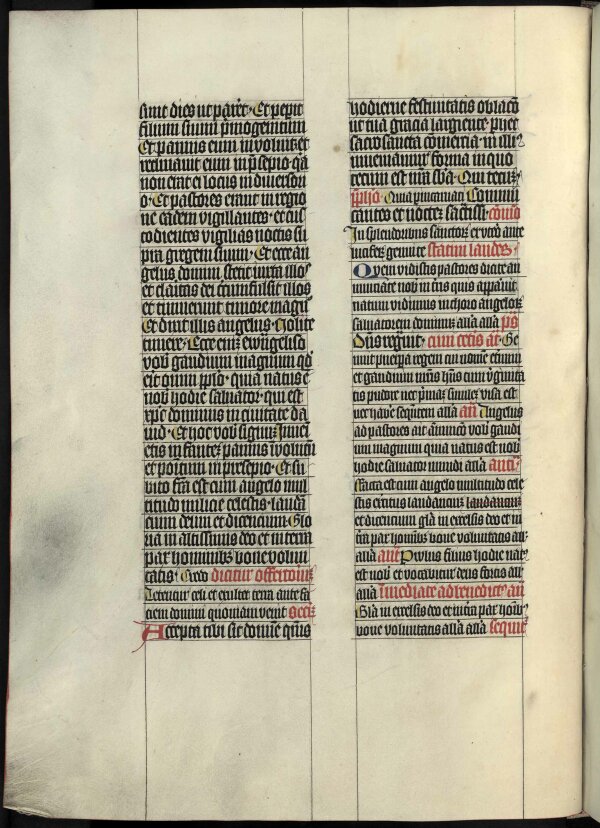 sunt dies ut pareret· Et peperit
filium suum primogenitum
Et pannis eum involuit· et
reclinavit eum in presepio· qa
non erat ei locus in diversori
o· Et pastores erant in regio
ne eadem vigillantes· et cus
todientes vigilias noctis su
pra gregem suum· Et ecce an
gelus domini stetit iuxta illos
et claritas dei circumfulsit illos
et timuerunt timore magno
Et dixit illis angelus· Nolite
timere· Ecce enim ewangeliso
vobis gaudium magnum qd
erit omni populo· quia natus e
vobis hodie salvator· qui est
xpc dominus in civitate da
vid· Et hoc vobis signum· Inveni
etis infantem pannis involutum
et positum in presepio· Et su
bito facta est cum angelo mul
titudo milicie celestis· laudan
cium deum et dicencium· Glo
ria in altissimis deo et in terra
pax hominibus bone volun
tatis· Credo dicitur offertorium
Letentur celi et exultet terra ante fa
ciem domini quoniam venit Secr
Accepta tibi sit domine quesumus
hodierne festivitatis oblacio
ut tua gracia largiente· per hec
sacrosancta comercia· in illius
inveniamur forma in quo
tecum est nra sba· Qui tecum
prefacio· Quia per incarnati· Communi
cantes et noctem sacratissi· communio
In splendoribus sanctorum ex utero ante
luciferum genui te statim laudes·
Quem vidistis pastores dicite an
nunciate nobis in terris quis apparuit
natum vidimus in choro angelorum
salvatorem dominum alla alla ps
Dns regnavit· cum ceteris an· Ge
nuit puerpera regem cui nomen eternum
et gaudium matris habens cum virginita
tis pudore nec primam similem visa est
nec habere sequentem alla an Angelus
ad pastores ait annuncio vobis gaudi
um magnum quia natus est vobis
hodie salvator mundi alla anti
Facta est cum angelo multitudo cele
stis exercitus laudancium laudancium
et dicencium gla in excelsis deo et in
terra pax hominibus bone voluntatis all·
alla ant Parvulus filius hodie natus
est nobis et vocabitur deus fortis all
alla immediate ad benedictus an
Gla in excelsis deo et in terra pax hominibus
bone voluntatis alla alla sequitur